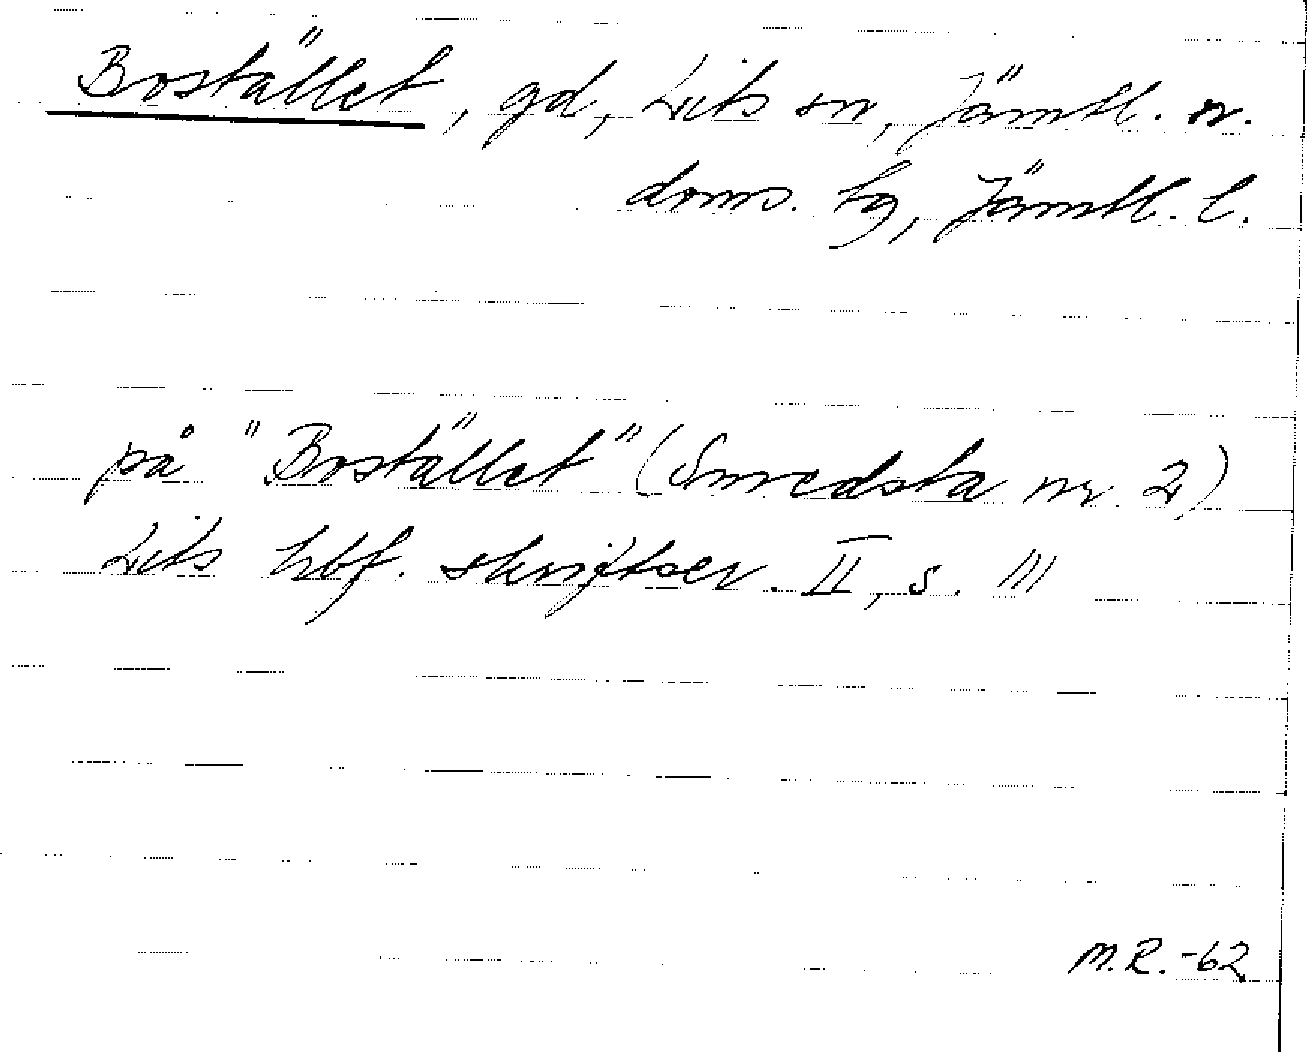 Bostället, gd, Lits sn, Jämtl. n.
doms. tg, Jämtl. l.
på "Bostället" (Smedsta nr. 2)
Lits hbf. skriftser. II, s. 111
M.R. -62